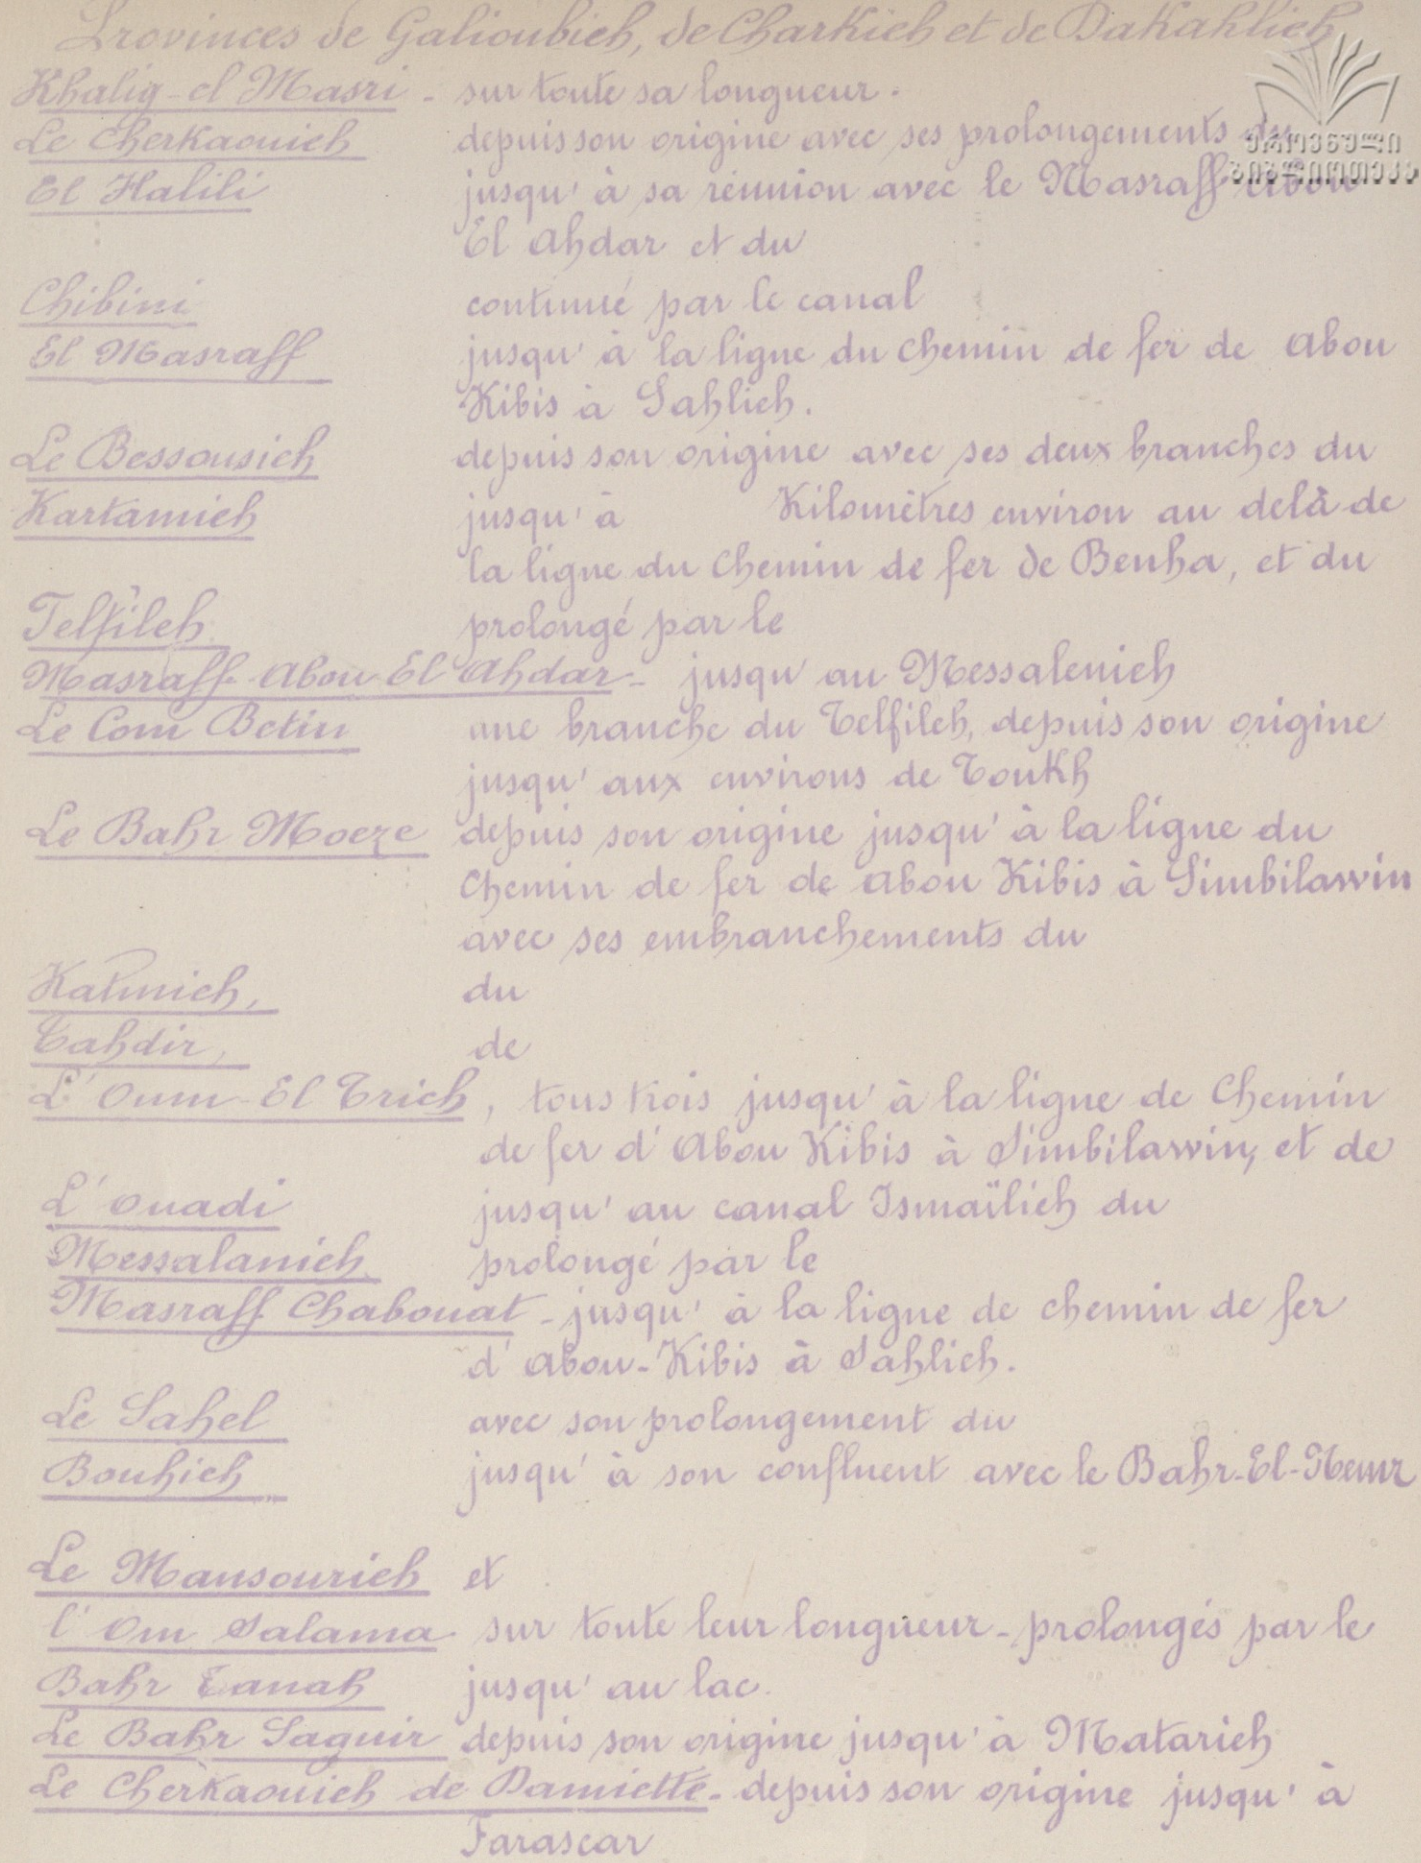 Provinces de Galioubieh, de Charkieh et de Dakahlieh
Khalig-el Masri - sur toute sa longueur.
Le Cherkaouieh depuis son origine avec ses prolongements du
El Halili jusqu'à sa réunion avec le Masraff Abou
El Ahdar et du
Chibini continué par le canal
El Masraff jusqu'à la ligne du chemin de fer de Abou
Kibis à Sahlieh.
Le Bessousieh depuis son origine avec ses deux branches du
Kartamieh jusqu'à Kilomètres environ au delà de
la ligne du chemin de fer de Benha, et du
Telfileh prolongé par le
Masraff-Abou-El Ahdar - jusqu'au Messalenieh
Le Com Betin une branche du Telfileh, depuis son origine
jusqu'aux environs de Toukh
Le Bahr Moeze depuis son origine jusqu'à la ligne du
Chemin de fer de Abou Kibis à Simbilawin
avec ses embranchements du
Katmieh, du
Tahdir, de
L'Oum-El Trieh, tous trois jusqu'à la ligne de Chemin
de fer d'Abou Kibis à Simbilawin, et de
L'Ouadi jusqu'au canal Ismaïlieh du
Messalanieh prolongé par le
Masraff Chabouat - jusqu'à la ligne de chemin de fer
d'Abou-Kibis à Sahlieh.
Le Sahel avec son prolongement du
Bouhieh jusqu'à son confluent avec le Bahr-El-
Le Mansourieh et
l'Om Salama sur toute leur longueur - prolongés par le
Bahr Tanah jusqu'au lac.
Le Bahr Saguir depuis son origine jusqu'à Matarieh
Le Cherkaouieh de Damiette - depuis son origine jusqu'à
Farascar
ეროვნული
ბიბლიოთეკა